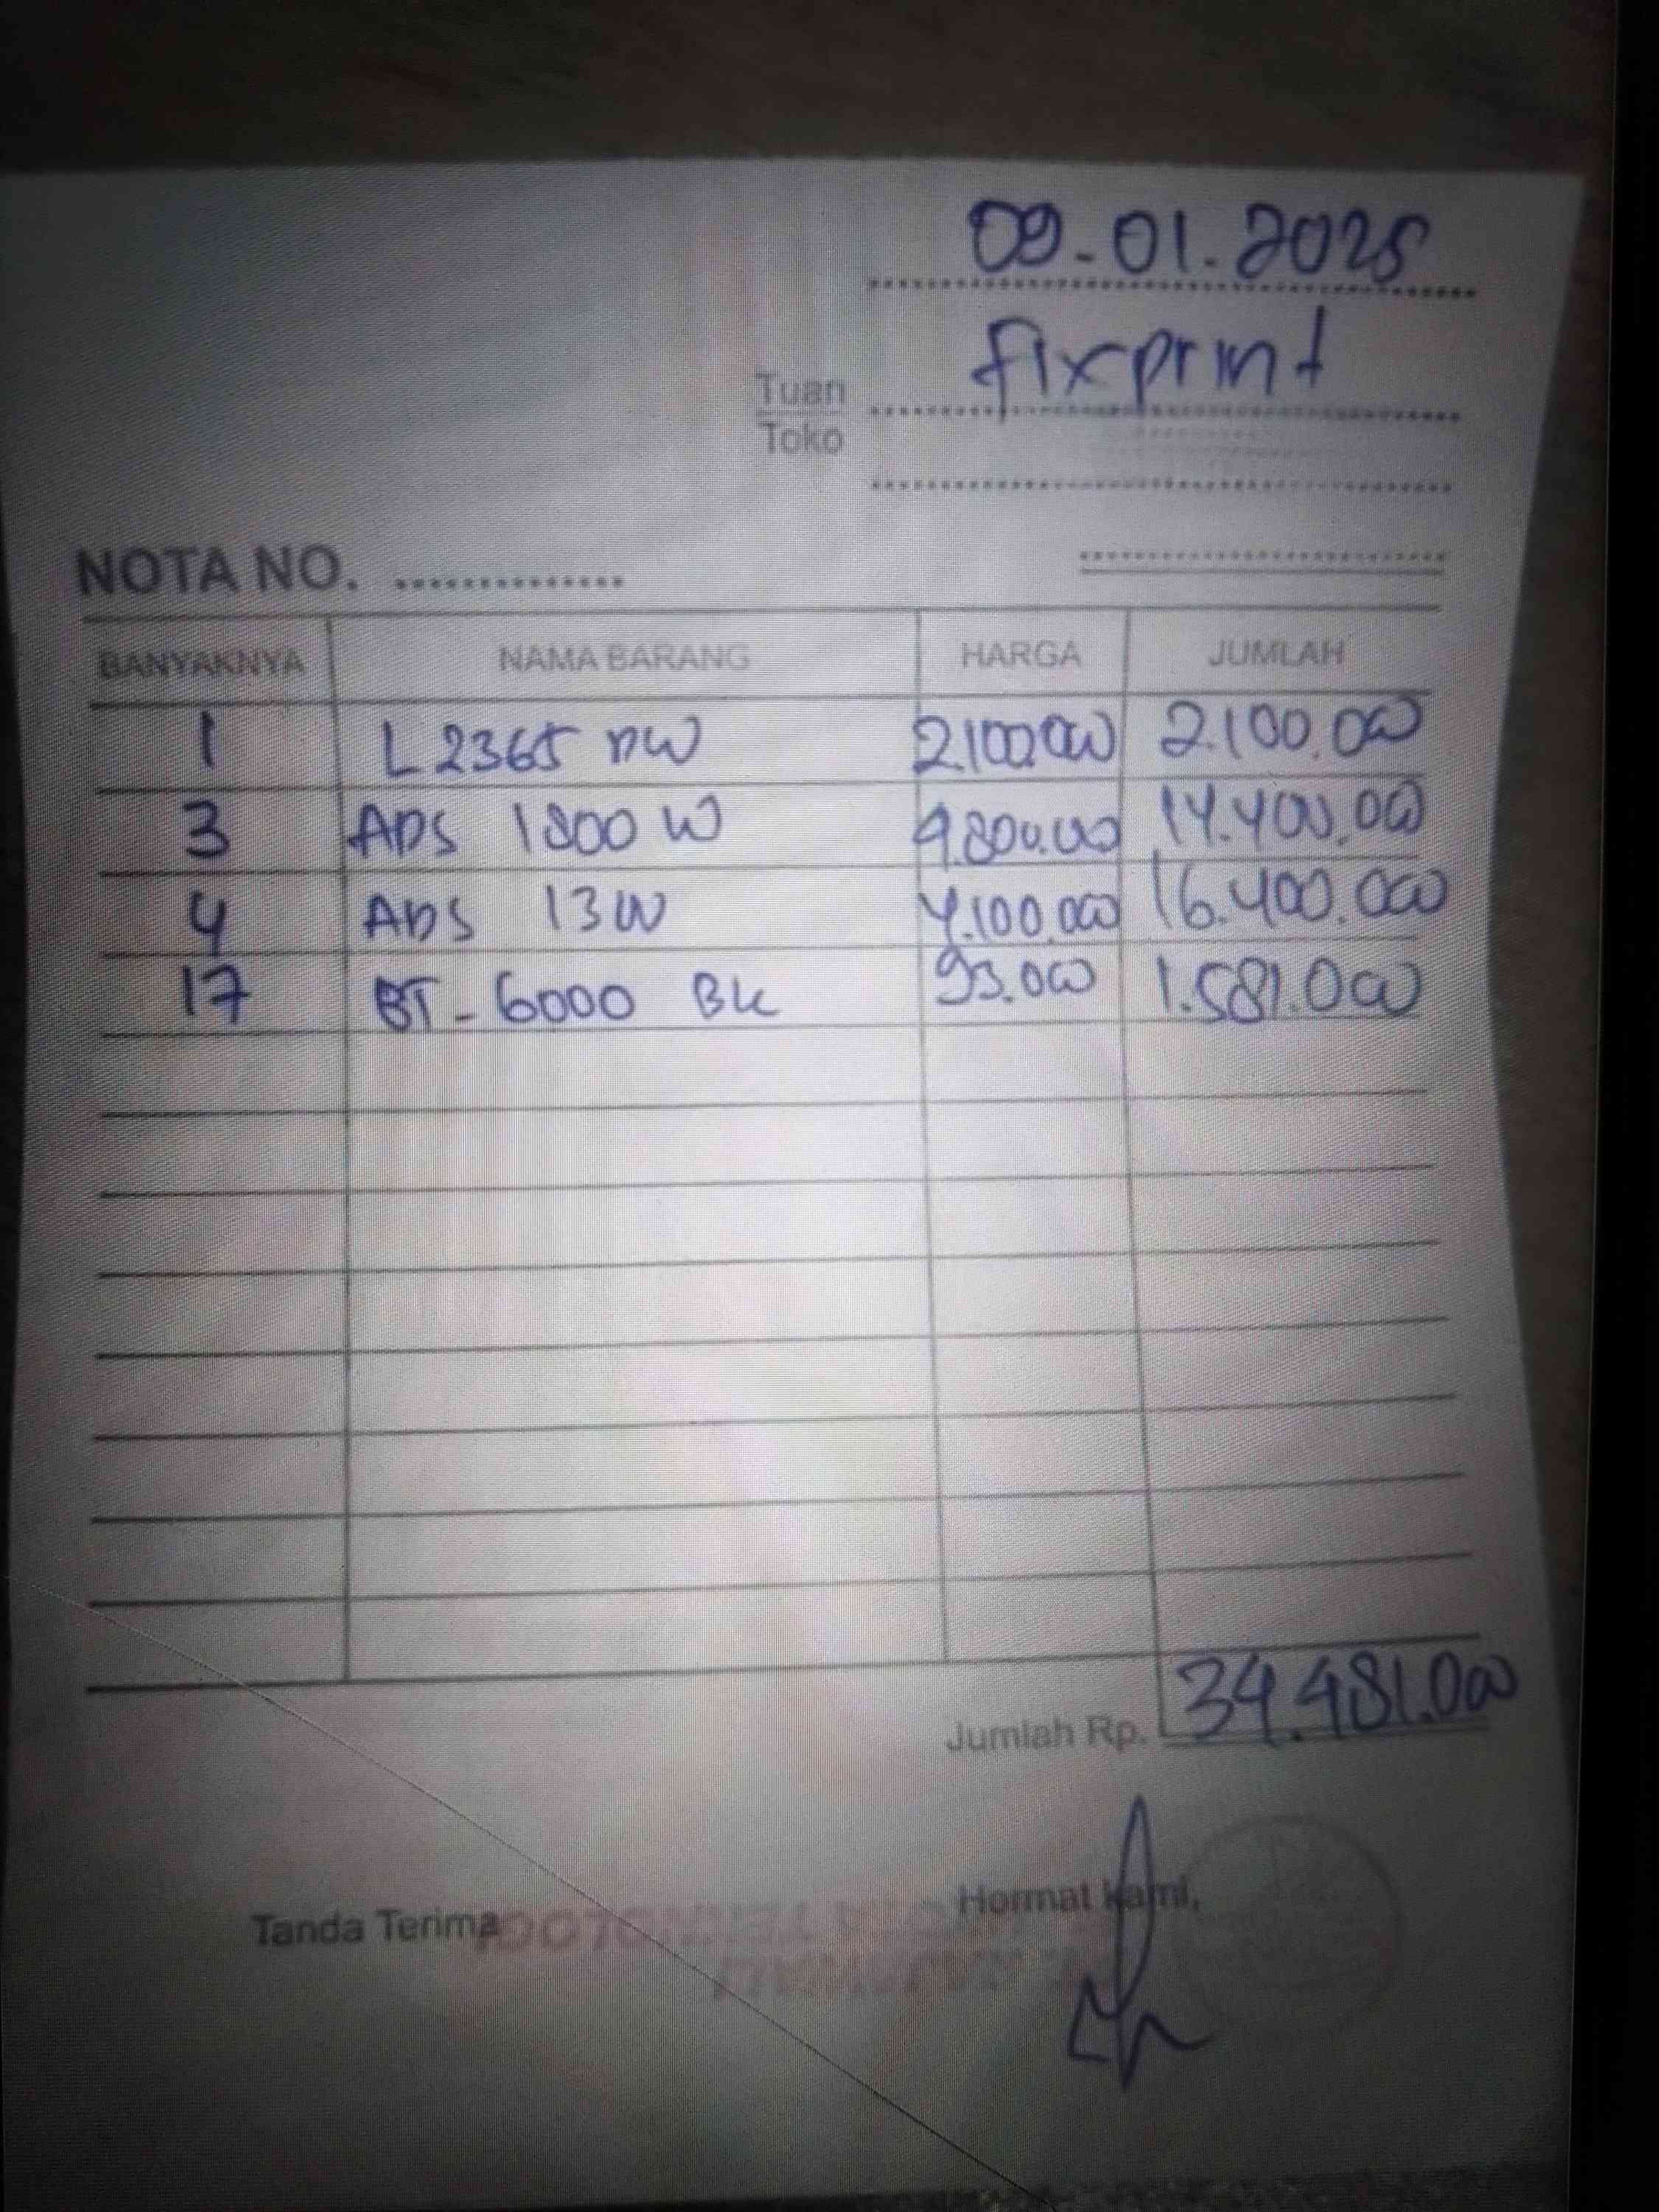 09-01.2025
fixprint
Tuan
Toko
NOTA NO. ..............
BANYAKNYA NAMA BARANG HARGA JUMLAH
1 L2365 DW 2.100.000 2.100.000
3 ADS 1800 W 4.800.000 14.400.000
4 ADS 13 W 4.100.000 16.400.000
17 BT - 6000 Bk 93.000 1.581.000
Jumlah Rp. 34.481.000
Tanda Terima Hormat kami,